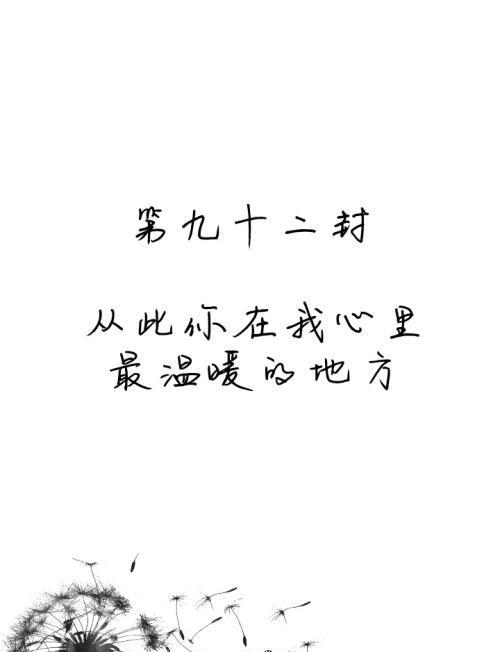 第九十二封
从此你在我心里
最温暖的地方